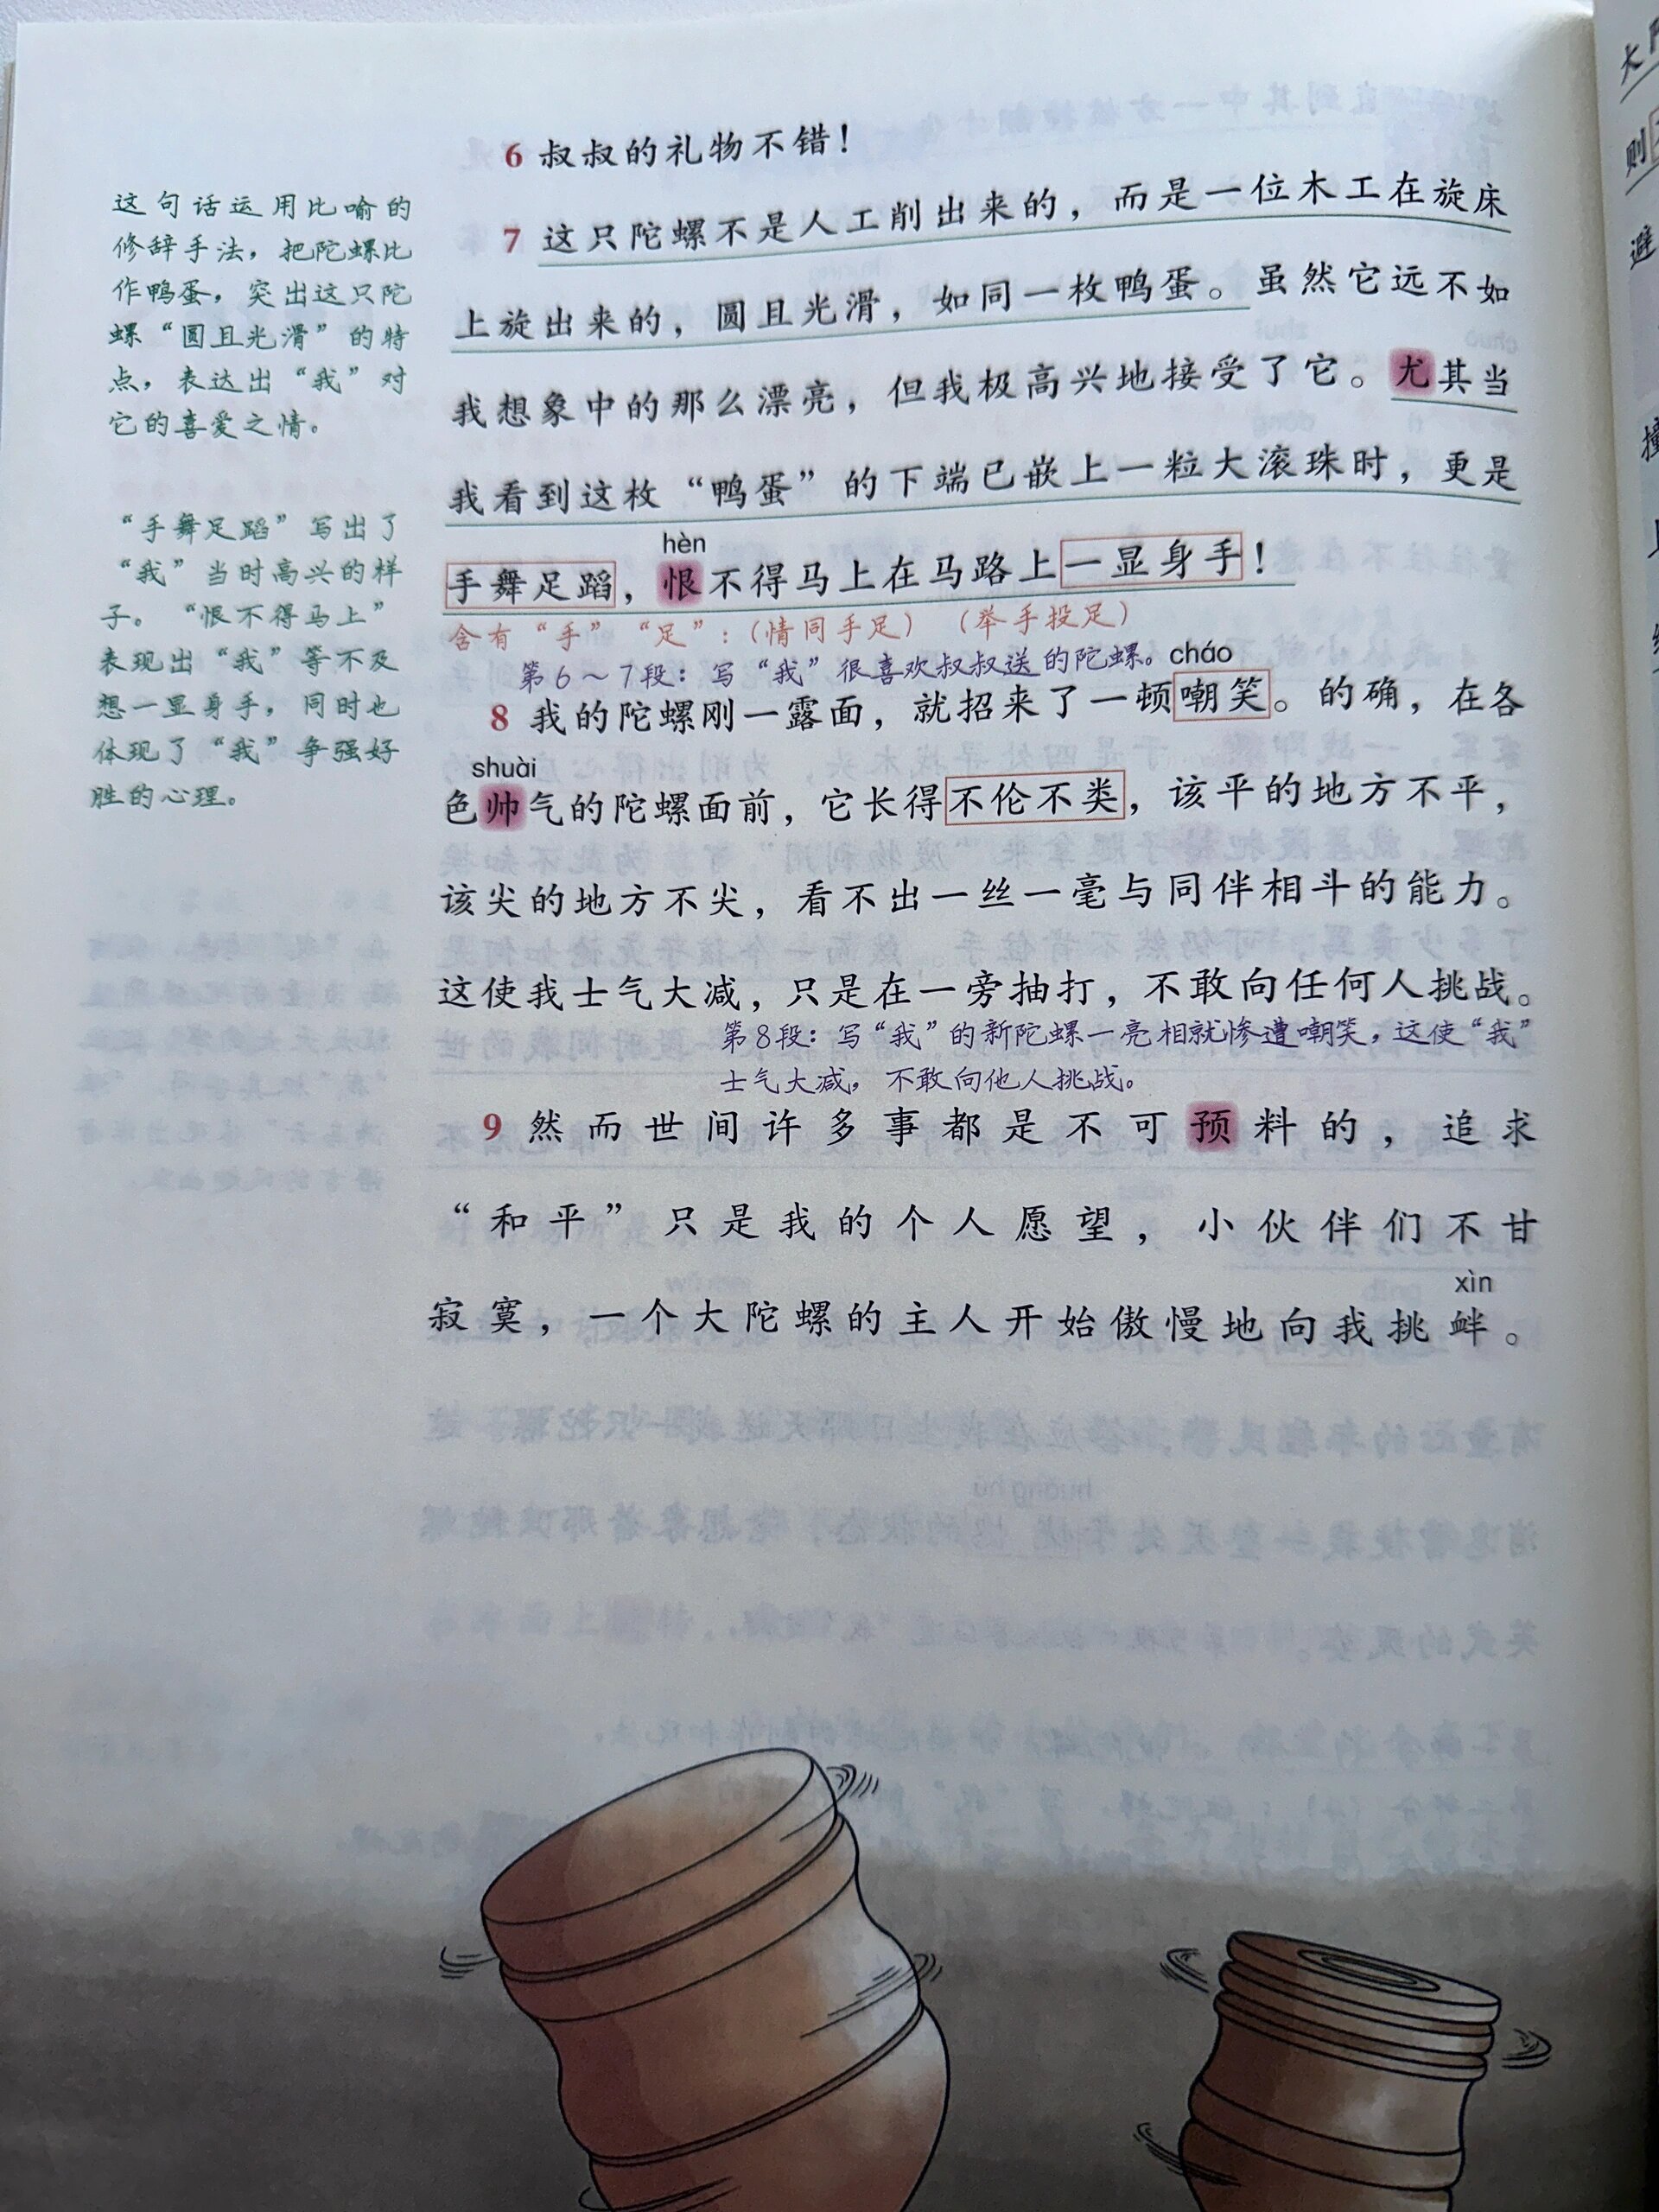 6 叔叔的礼物不错！
这句话运用比喻的
修辞手法，把陀螺比
作鸭蛋，突出这只陀
螺“圆且光滑”的特
点，表达出“我”对
它的喜爱之情。
7 这只陀螺不是人工削出来的，而是一位木工在旋床
上旋出来的，圆且光滑，如同一枚鸭蛋。虽然它远不如
我想象中的那么漂亮，但我极高兴地接受了它。尤其当
我看到这枚“鸭蛋”的下端已嵌上一粒大滚珠时，更是
hèn
手舞足蹈，恨不得马上在马路上一显身手！
含有“手”“足”：（情同手足）（举手投足）
“手舞足蹈”写出了
“我”当时高兴的样
子。“恨不得马上”
表现出“我”等不及
想一显身手，同时也
体现了“我”争强好
胜的心理。
第6～7段：写“我”很喜欢叔叔送的陀螺。
cháo
8 我的陀螺刚一露面，就招来了一顿嘲笑。的确，在各
shuài
色帅气的陀螺面前，它长得不伦不类，该平的地方不平，
该尖的地方不尖，看不出一丝一毫与同伴相斗的能力。
这使我士气大减，只是在一旁抽打，不敢向任何人挑战。
第8段：写“我”的新陀螺一亮相就惨遭嘲笑，这使“我”
士气大减，不敢向他人挑战。
9 然而世间许多事都是不可预料的，追求
“和平”只是我的个人愿望，小伙伴们不甘
xìn
寂寞，一个大陀螺的主人开始傲慢地向我挑衅。
则
避